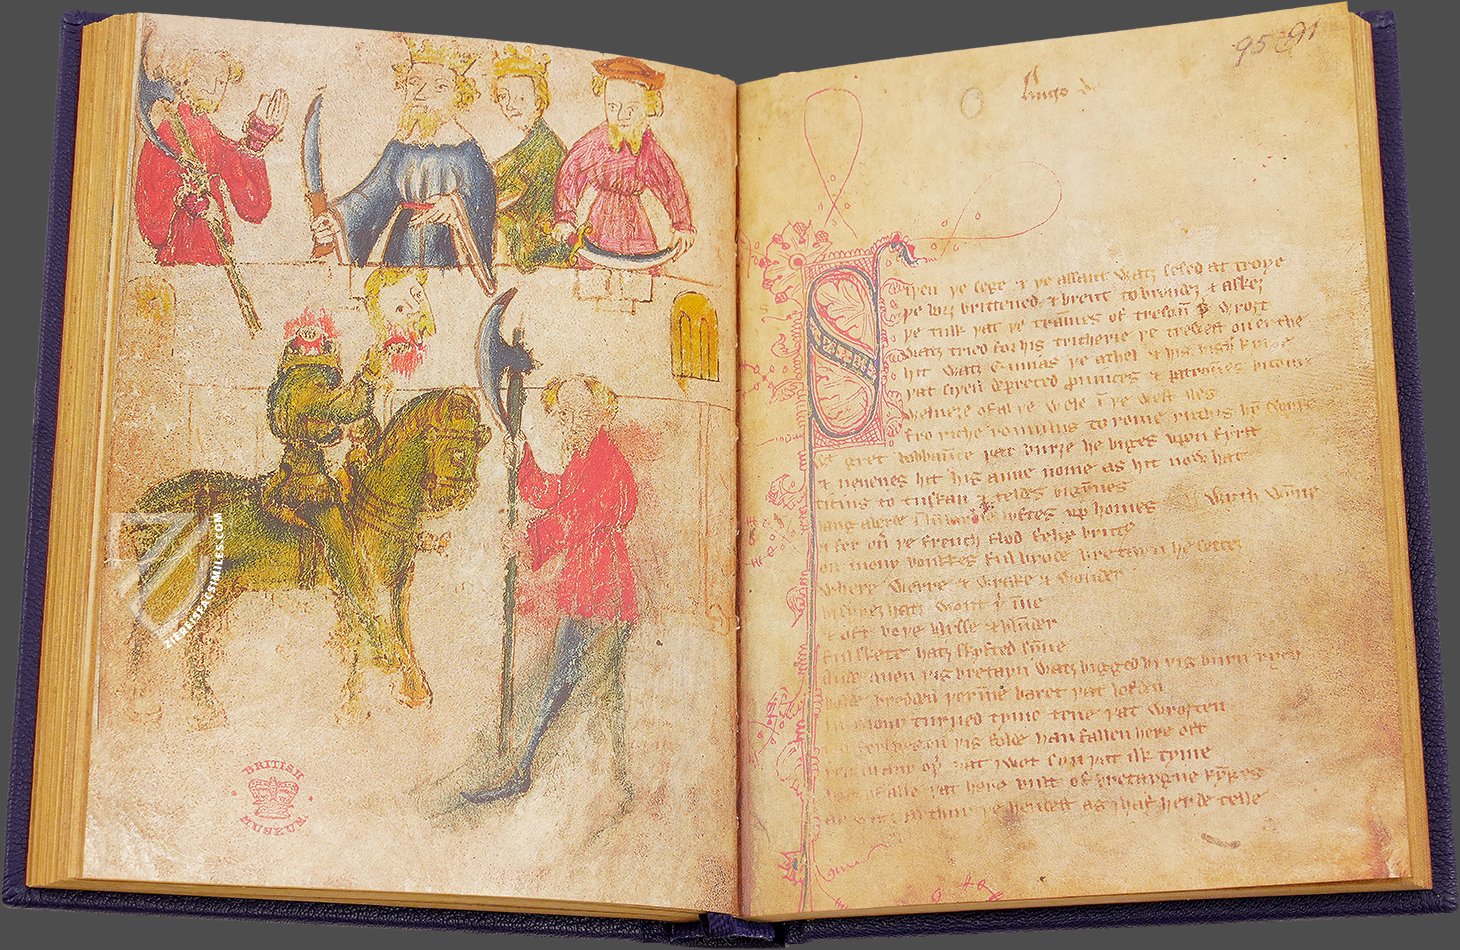 95 91
Hugo de
Siþen þe sege & þe assaut watz sesed at troye
þe borȝ brittened & brent to brondez & askez
þe tulk þat þe trammes of tresoun þ wroȝt
watz tried for his tricherie þe trewest on erthe
hit watz Ennias þe athel & his highe kynde
þat siþen depreced prouinces & patrounes bicome
welneȝe of al þe wele in þe west iles
fro riche romulus to rome ricchis hym swyþe
gret bobbaunce þat burȝe he biges vpon fyrst
& neuenes hit his aune nome as hit now hat
ticius to tuskan & teldes bigynnes
langaberde in lumbardie lyftes vp homes wyth wynne
& fer ouer þe french flod felix brutus
on mony bonkkes ful brode bretayn he settez
where werre & wrake & wonder
bi syþez hatz wont þer inne
& oft boþe blysse & blunder
ful skete hatz skyfted synne
Ande quen þis bretayn watz bigged bi þis burn rych
bolde bredden þerinne baret þat lofden
in mony turned tyme tene þat wroȝten
ferlyes on þis folde han fallen here oft
in any oþer þat I wot syn þat ilk tyme
bot of alle þat here bult of bretaygne kynges
ay watz arthur þe hendest as I haf herde telle
BRITISH
MUSEUM
ZIEREISFACSIMILES.COM